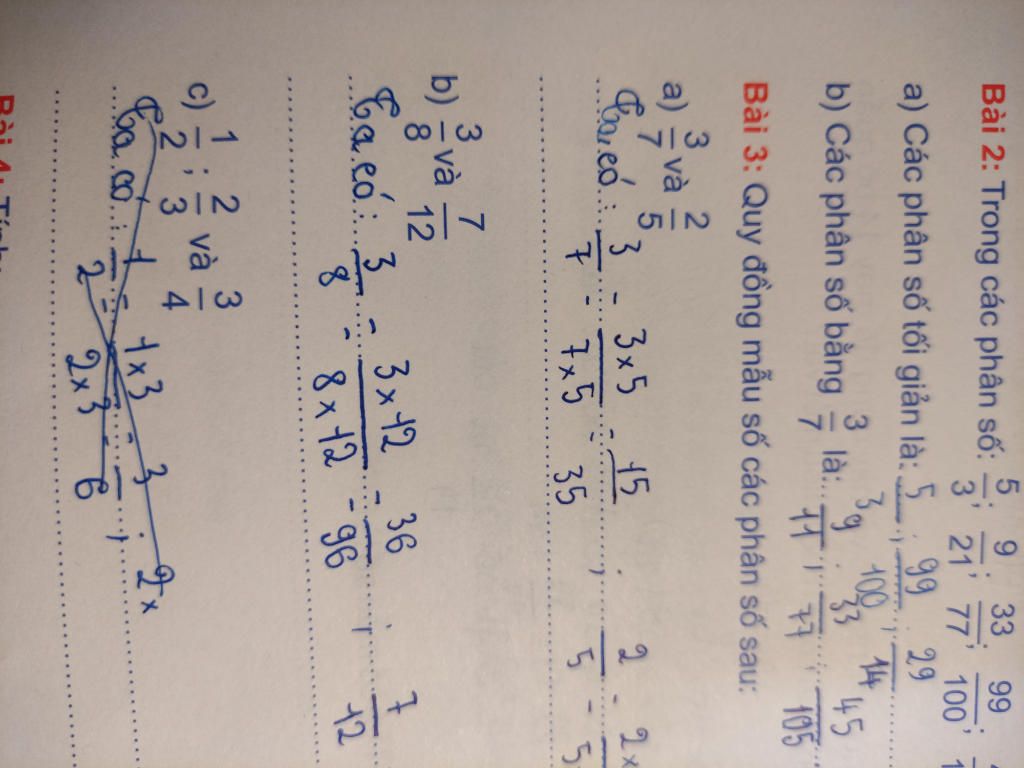 Bài 2: Trong các phân số: 5/3; 9/21; 33/77; 99/100;
a) Các phân số tối giản là: 5/3; 99/100; 29/14
b) Các phân số bằng 3/7 là: 9/11; 33/77; 45/105
Bài 3: Quy đồng mẫu số các phân số sau:
a) 3/7 và 2/5
Ta có: 3/7 = 3×5/7×5 = 15/35; 2/5 = 2×/5
b) 3/8 và 7/12
Ta có: 3/8 = 3×12/8×12 = 36/96; 7/12
c) 1/2; 2/3 và 3/4
Ta có: 1/2 = 1×3/2×3 = 3/6; 2×
Bài 4: Tính